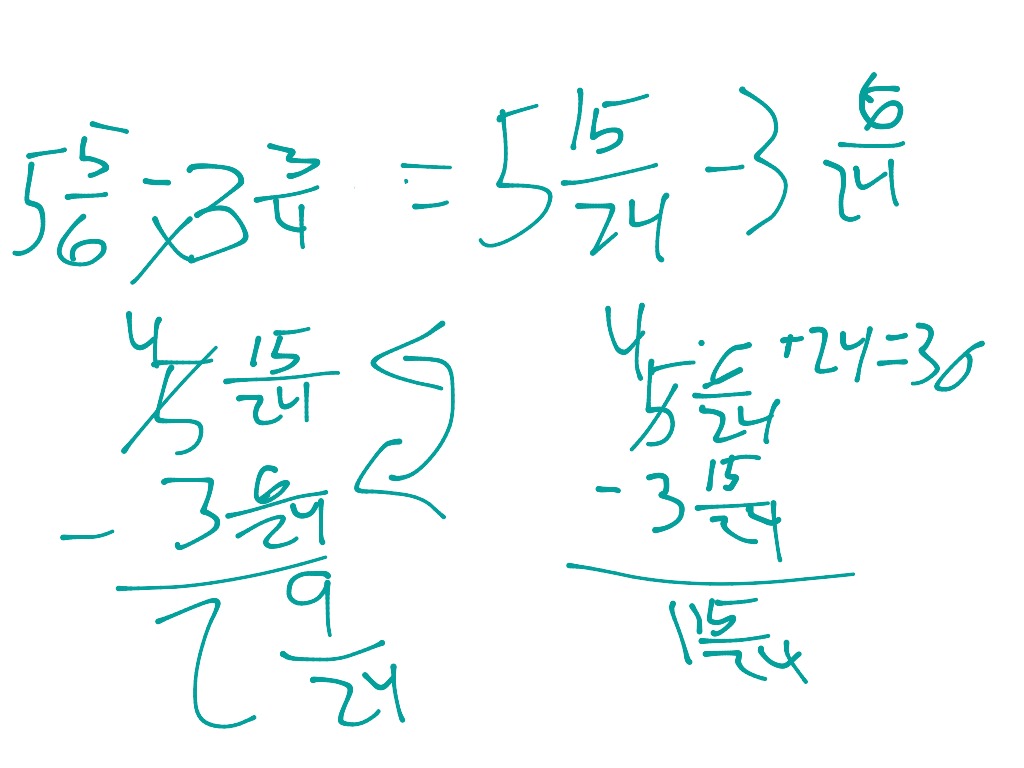 5 5/6 - 3 3/4 = 5 15/24 - 3 6/24
4
5 15/24
- 3 6/24
2 9/24
4
5 6/24 +24=30
- 3 15/24
1 15/24